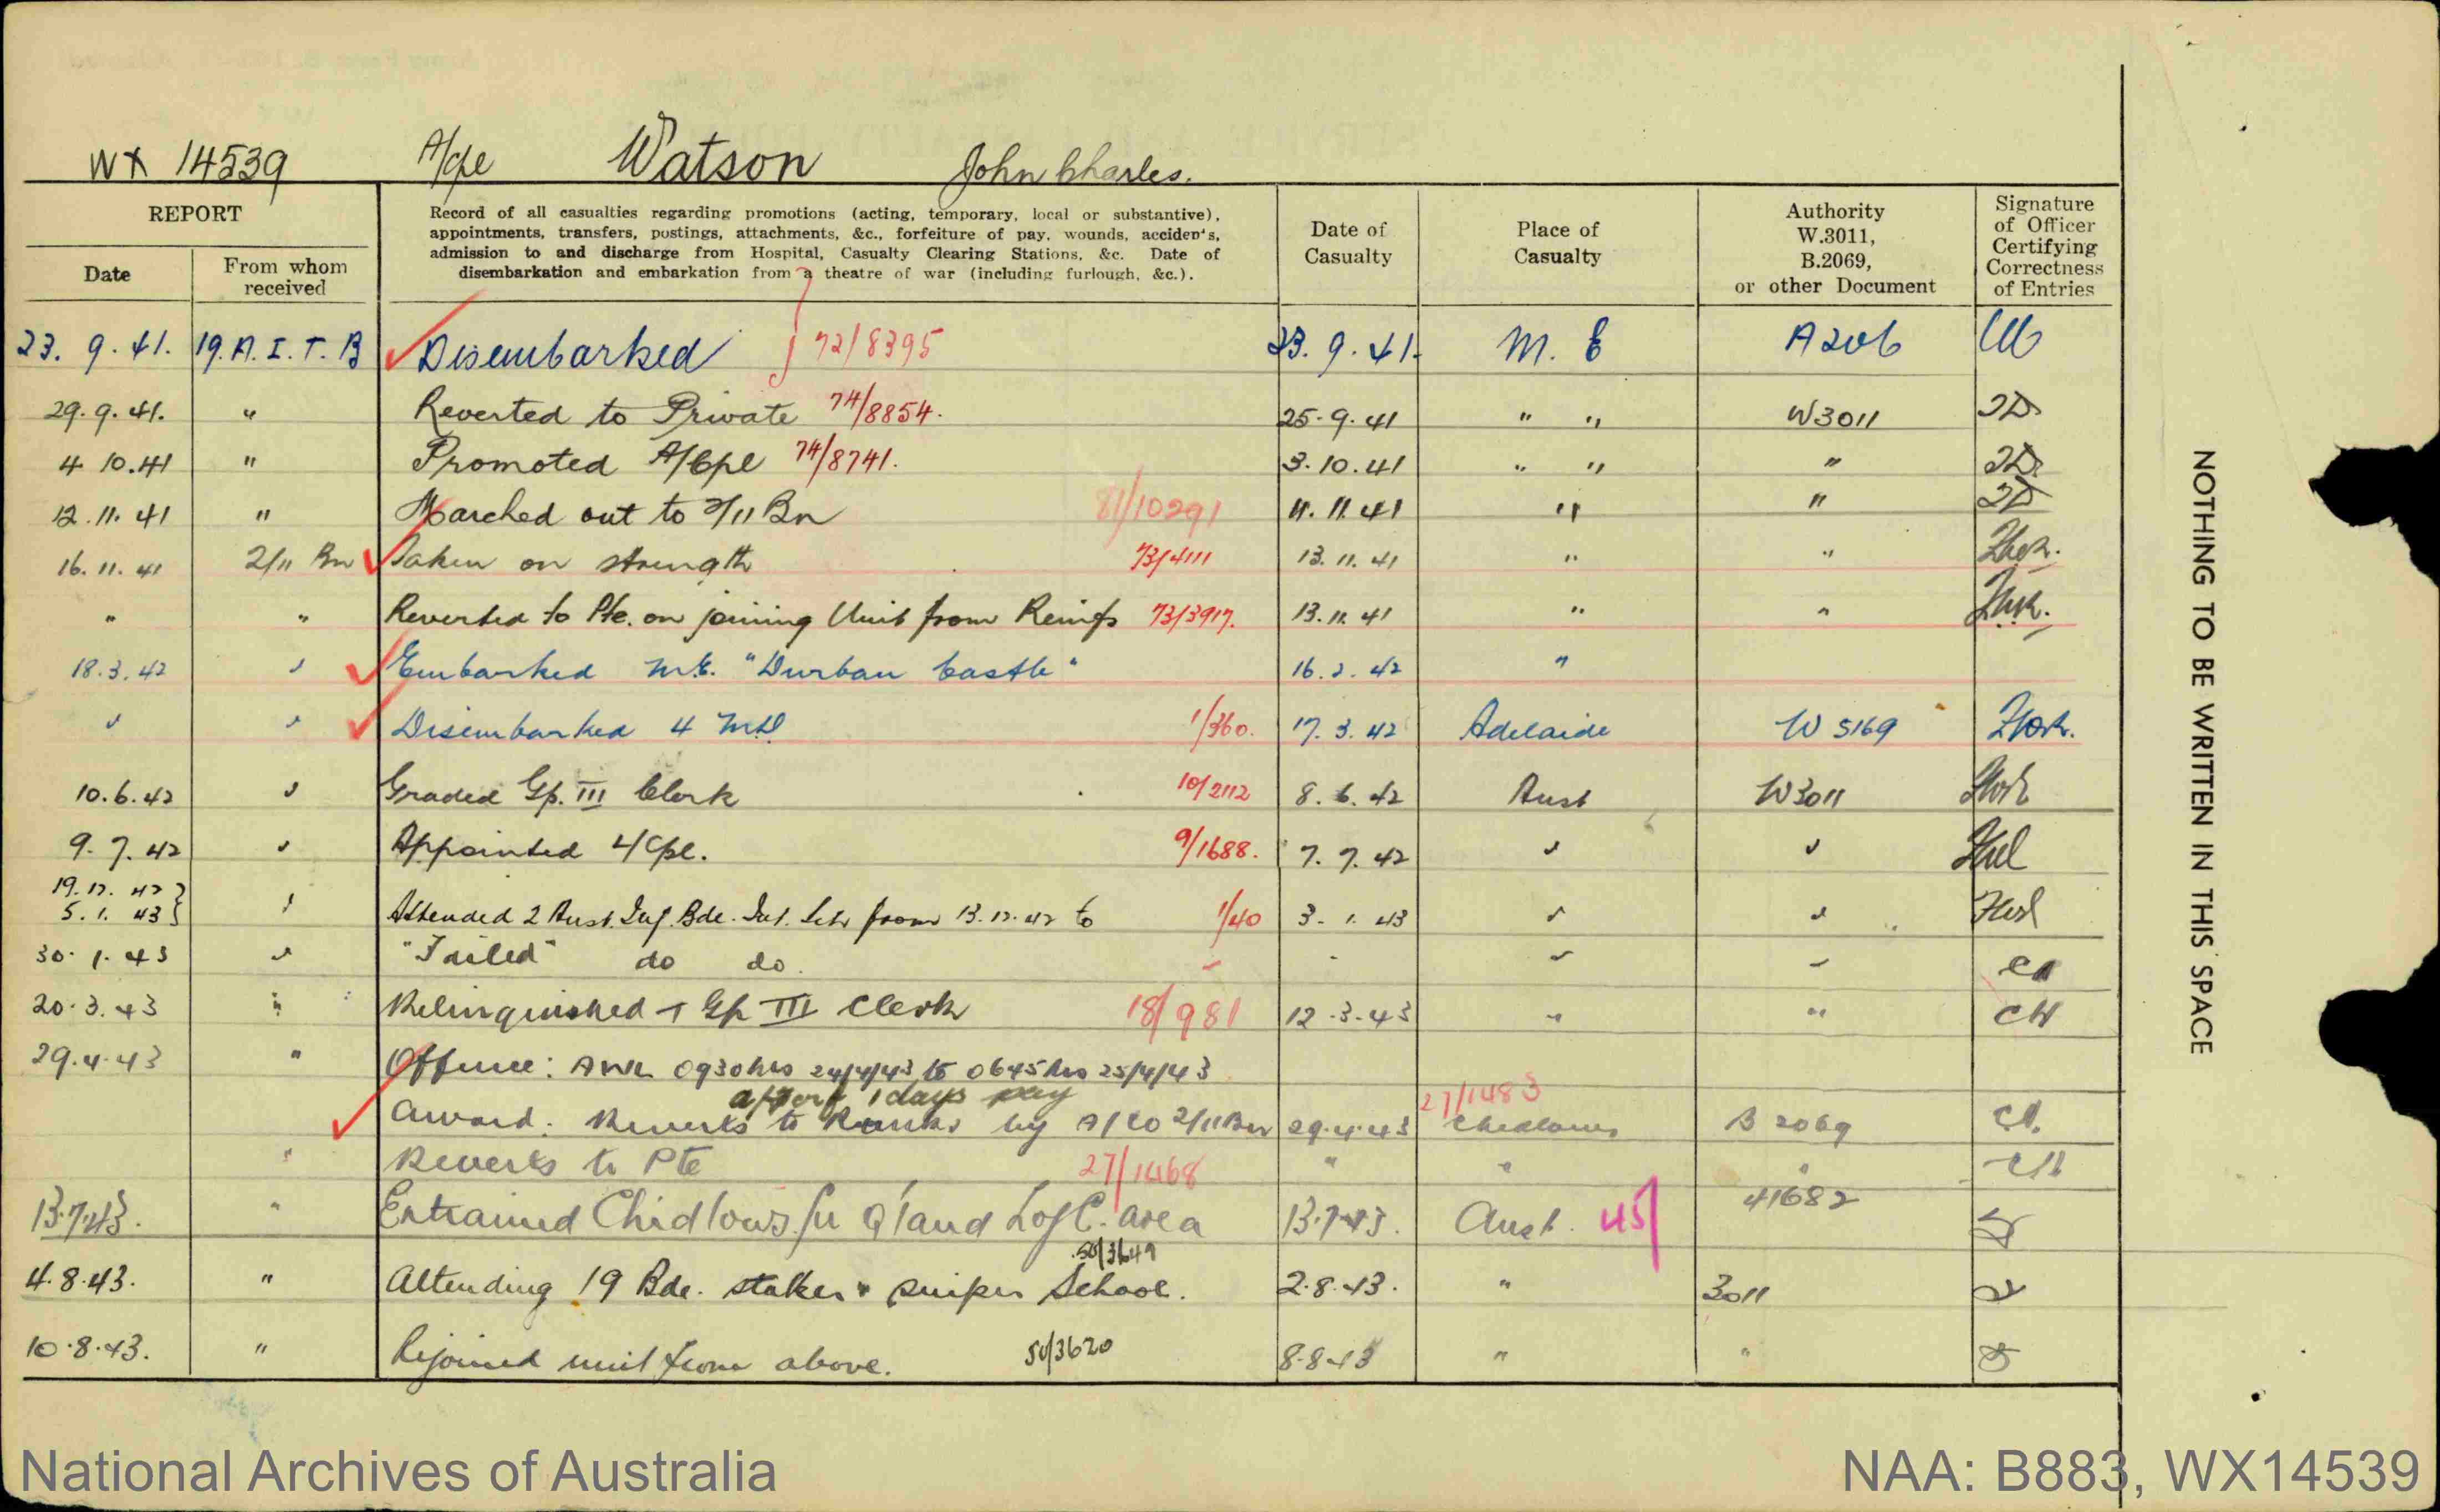 WX 14539 A/Cpl Watson John Charles.
REPORT
Date
From whom received
Record of all casualties regarding promotions (acting, temporary, local or substantive),
appointments, transfers, postings, attachments, &c., forfeiture of pay, wounds, accidents,
admission to and discharge from Hospital, Casualty Clearing Stations, &c. Date of
disembarkation and embarkation from a theatre of war (including furlough, &c.).
Date of Casualty
Place of Casualty
Authority
W.3011,
B.2069,
or other Document
Signature
of Officer
Certifying
Correctness
of Entries
23. 9. 41. 19. A. I. T. B Disembarked 72/8395 23. 9. 41. M. E A206
29. 9. 41. " Reverted to Private 74/8854. 25. 9. 41 " " W3011
4 10.41 " Promoted A/Cpl 74/8741. 3. 10. 41 " " "
12. 11. 41 " Marched out to 2/11 Bn 81/10291 11. 11. 41 " "
16. 11. 41 2/11 Bn Taken on strength 73/4111 13. 11. 41 " "
" " Reverted to Pte. on joining Unit from Reinfs 73/3917. 13. 11. 41 " "
18. 3. 42 " Embarked M.E. "Durban Castle" 16. 2. 42 "
" " Disembarked 4 M.D 1/360. 17. 3. 42 Adelaide W 5169
10. 6. 42 " Graded Gp. III Clerk 10/2112 8. 6. 42 Aust W3011
9. 7. 42 " Appointed L/Cpl. 9/1688. 7. 7. 42 " "
19. 12. 42
5. 1. 43 " Attended 2 Aust. Inf. Bde. Int. Sch from 13. 12. 42 to 1/40 3. 1. 43 " "
30. 1. 43 " "Failed" do do. " "
20. 3. 43 " Relinquished Gp III Clerk 18/981 12. 3. 43 " "
29. 4. 43 " Offence: AWL 0930 hrs 24/4/43 to 0645 hrs 25/4/43
1 days pay 27/1483
Award: Reverts to Ranks by A/CO 2/11 Bn 29. 4. 43 Chidlows B 2069
" Reverts to Pte 27/1468 " " "
13. 7. 43. " Entrained Chidlows for Q'land L of C. area 13. 7. 43. Aust. 45 41682
50/3649
4. 8. 43. " Attending 19 Bde. stalker & sniper School. 2. 8. 43. " 3011
10. 8. 43. " Rejoined unit from above. 50/3620 8. 8. 43 " "
NOTHING TO BE WRITTEN IN THIS SPACE
National Archives of Australia
NAA: B883, WX14539